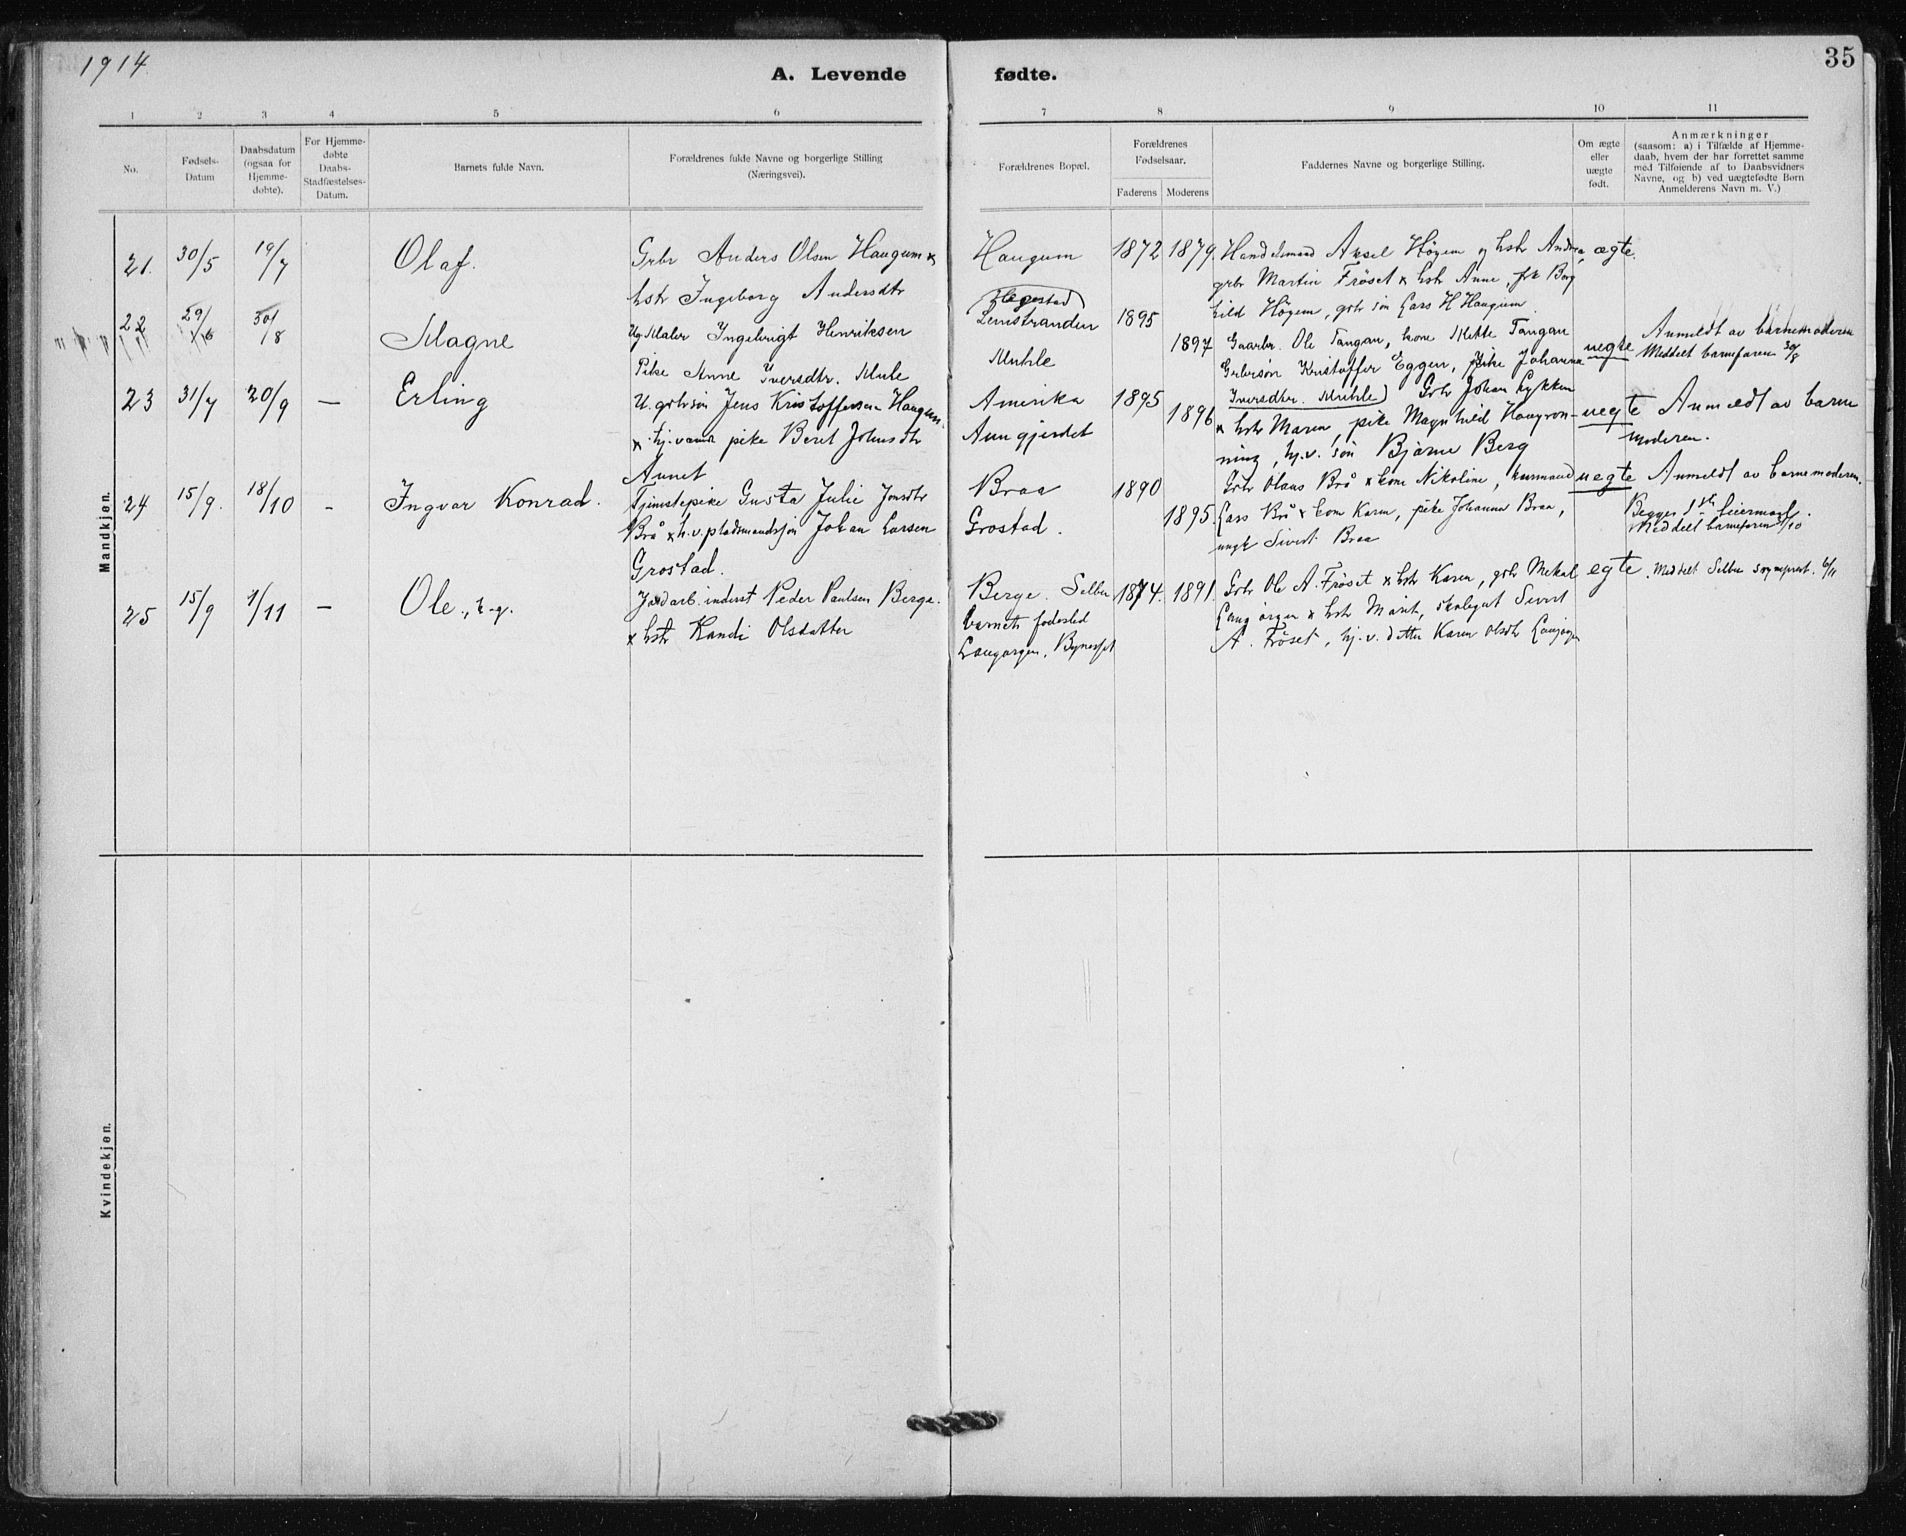 1914
A. Levende fødte.
35
1 2 3 4 5 6 7 8 9 10 11
No.
Fødsels-
Datum
Daabsdatum
(ogsaa for
Hjemme-
døbte).
For Hjemme-
døbte
Daabs-
Stadfæstelses-
Datum.
Barnets fulde Navn.
Forældrenes fulde Navne og borgerlige Stilling
(Næringsvei).
Forældrenes Bopæl.
Forældrenes
Fødselsaar.
Faderens Moderens
Faddernes Navne og borgerlige Stilling.
Om ægte
eller
uægte
født.
Anmærkninger
(saasom: a) i Tilfælde af Hjemme-
daab, hvem der har forrettet samme
med Tilføiende af to Daabsvidners
Navne, og b) ved uægtefødte Børn
Anmelderens Navn m. V.)
Mandkjøn.
21. 30/5 19/7
Olaf.
Grbr Anders Olsen Haugum x
hstr Ingeborg Andersdtr
Haugum
1872 1879
Handelsmand Aksel Høgem og hstr Andrea
grbr Martin Frøset x hstr Anne, frk Borg
hild Høgem, grbr søn Lars H Haugum
ægte.
22 29/6 30/8
Magne
Ug Maler Ingebrigt Henriksen
Pike Anne Iversdtr. Mule
Leinstranden
Muhle
1895
1897
Gaarbr. Ole Tangan, kone Mette Tangan
Grbrsøn Kristoffer Eggen, pike Johanna
Iversdtr. Muhle
uegte
Anmeldt av barnemoderen
Meddelt barnefaren 30/8
23 31/7 20/9 —
Erling
U. grbrsøn Jens Kristoffersen Haugum
x hj. vær pike Beret Johnsdtr
Aunet
Amerika
Aungjerdet
1895
1896
Grbr Johan Lykken
x hstr Maren, pike Magnhild Haugrøn-
ning, hj.v. søn Bjarne Berg
uegte
Anmeldt av barne
moderen.
24 15/9. 18/10 -
Ingvar Konrad.
Tjenstepike Gusta Julie Jonsdtr
Brå x h.v. pladsmandssøn Johan Larsen
Grostad.
Braa
Grostad.
1890
1895.
Grbr Olaus Brå x kone Nikoline, husmand
Lars Brå x kone Karen, pike Johanna Braa,
ungk Sivert Braa
uegte
Anmeldt av barnemoderen.
Begges 1ste leiermaal.
Meddelt barnefaren
25 15/9 1/11 —
Ole
Jordarb. inderst Peder Paulsen Berge.
x hstr Randi Olsdatter
Berge. Selbu
barnets fødested
Langørgen, Bynesset
1874. 1891.
Grbr Ole A. Frøset x hstr Karen, grbr Mekal
Langørgen x hstr Marit, skolegut Sivert
A. Frøset, hj.v. datter Karen Olsdtr Langørgen
egte.
Meddelt Selbu sogneprest. 6/11
Kvindekjøn.